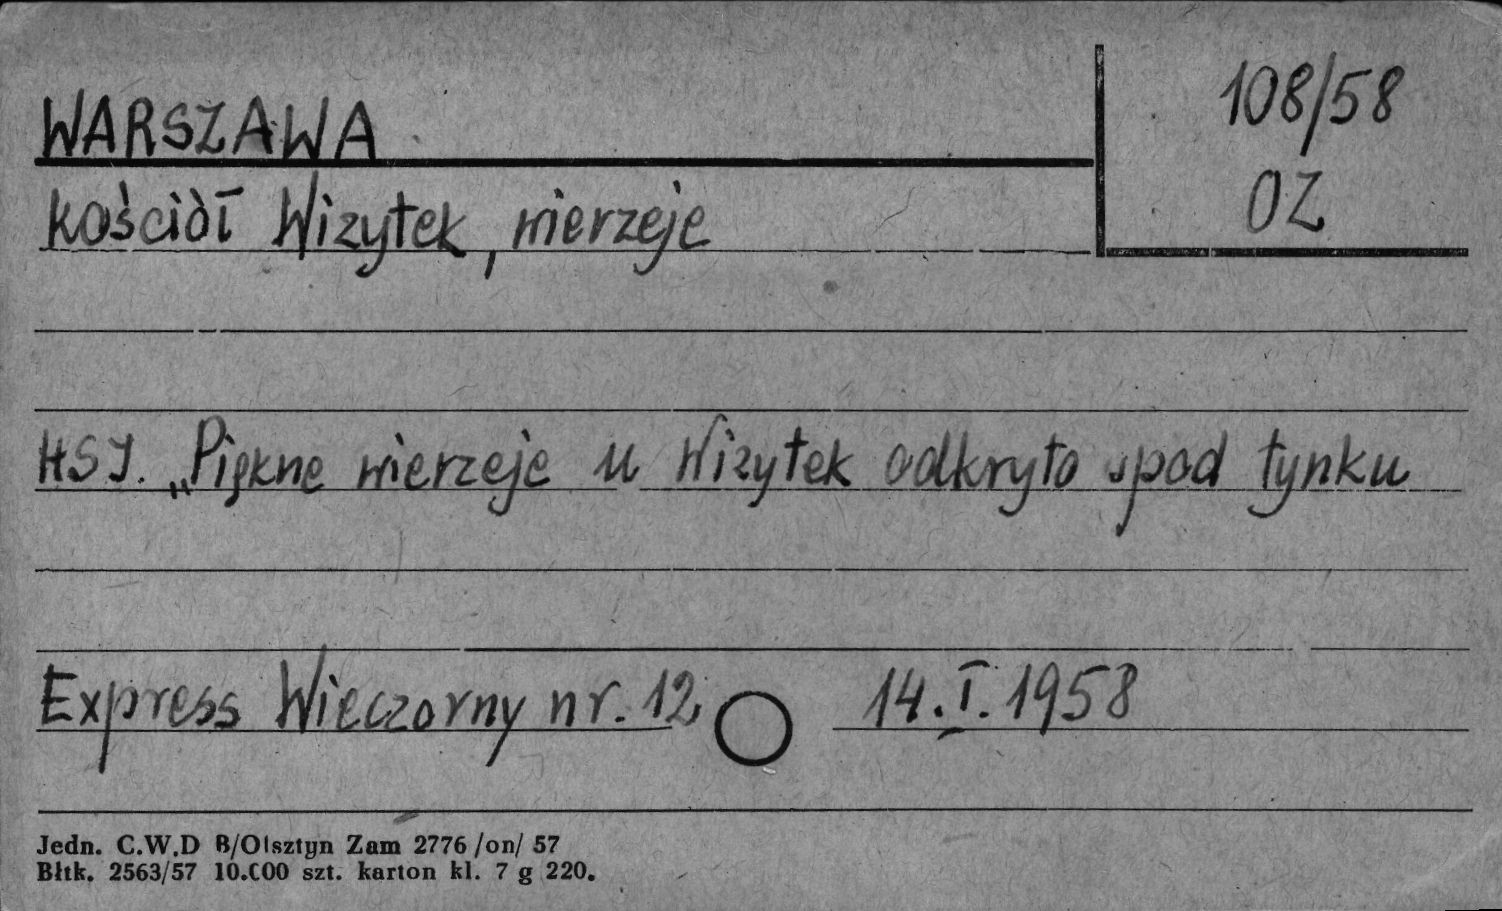 WARSZAWA
108/58
OZ
Kościół Wizytek, wierzeje
HSJ. „Piękne wierzeje u Wizytek odkryto spod tynku
Express Wieczorny nr. 12 14.I.1958
Jedn. C.W.D B/Olsztyn Zam 2776 /on/ 57
Błtk. 2563/57 10.000 szt. karton kl. 7 g 220.